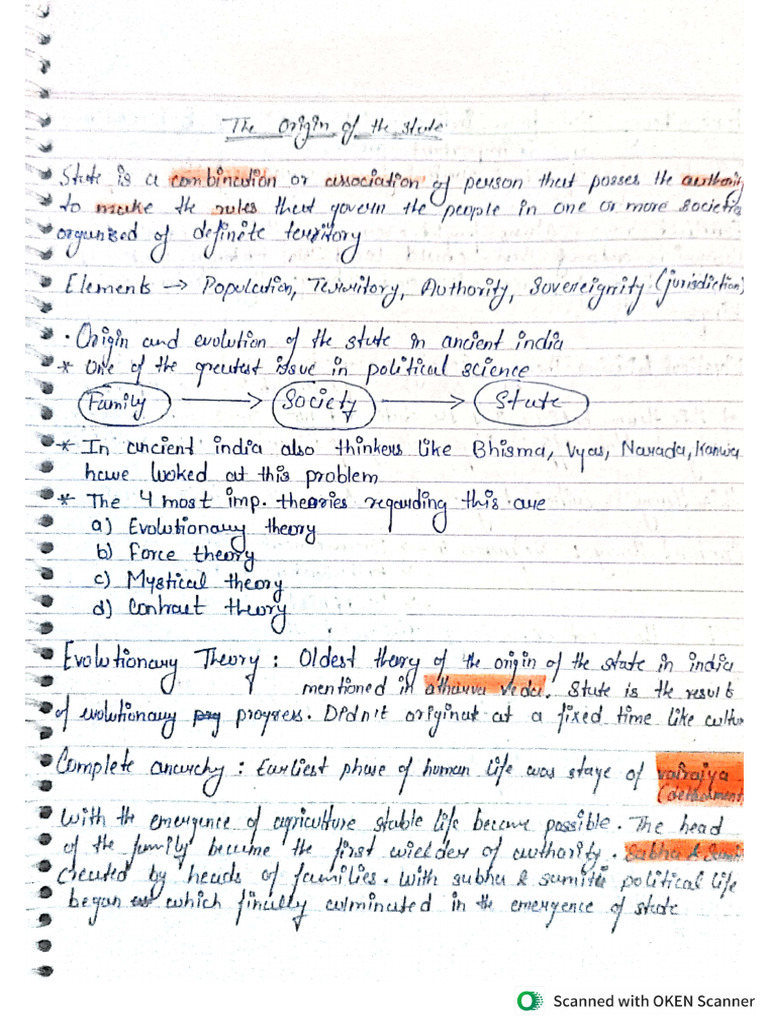 The origin of the state
State is a combination or association of person that posses the authority
to make the rules that govern the people in one or more societies
organised of definite territory
Elements → Population, Territory, Authority, Sovereignity (jurisdiction)
· Origin and evolution of the state in ancient india
* One of the greatest issue in political science
Family → Society → State
* In ancient india also thinkers like Bhisma, Vyas, Narada, Kanwa
have looked at this problem
* The 4 most imp. theories regarding this are
a) Evolutionary theory
b) Force theory
c) Mystical theory
d) Contract theory
Evolutionary Theory : Oldest theory of the origin of the state in india
mentioned in atharva veda. State is the result
of evolutionary progress. Didn't originat at a fixed time like cultur
Complete anarchy : Earliest phase of human life was stage of vairajya
With the emergence of agriculture stable life become possible. The head
of the family became the first wielder of authority. Sabha & Samiti
created by heads of families. With sabha & samiti political life
began which finally culminated in the emergence of state
Scanned with OKEN Scanner